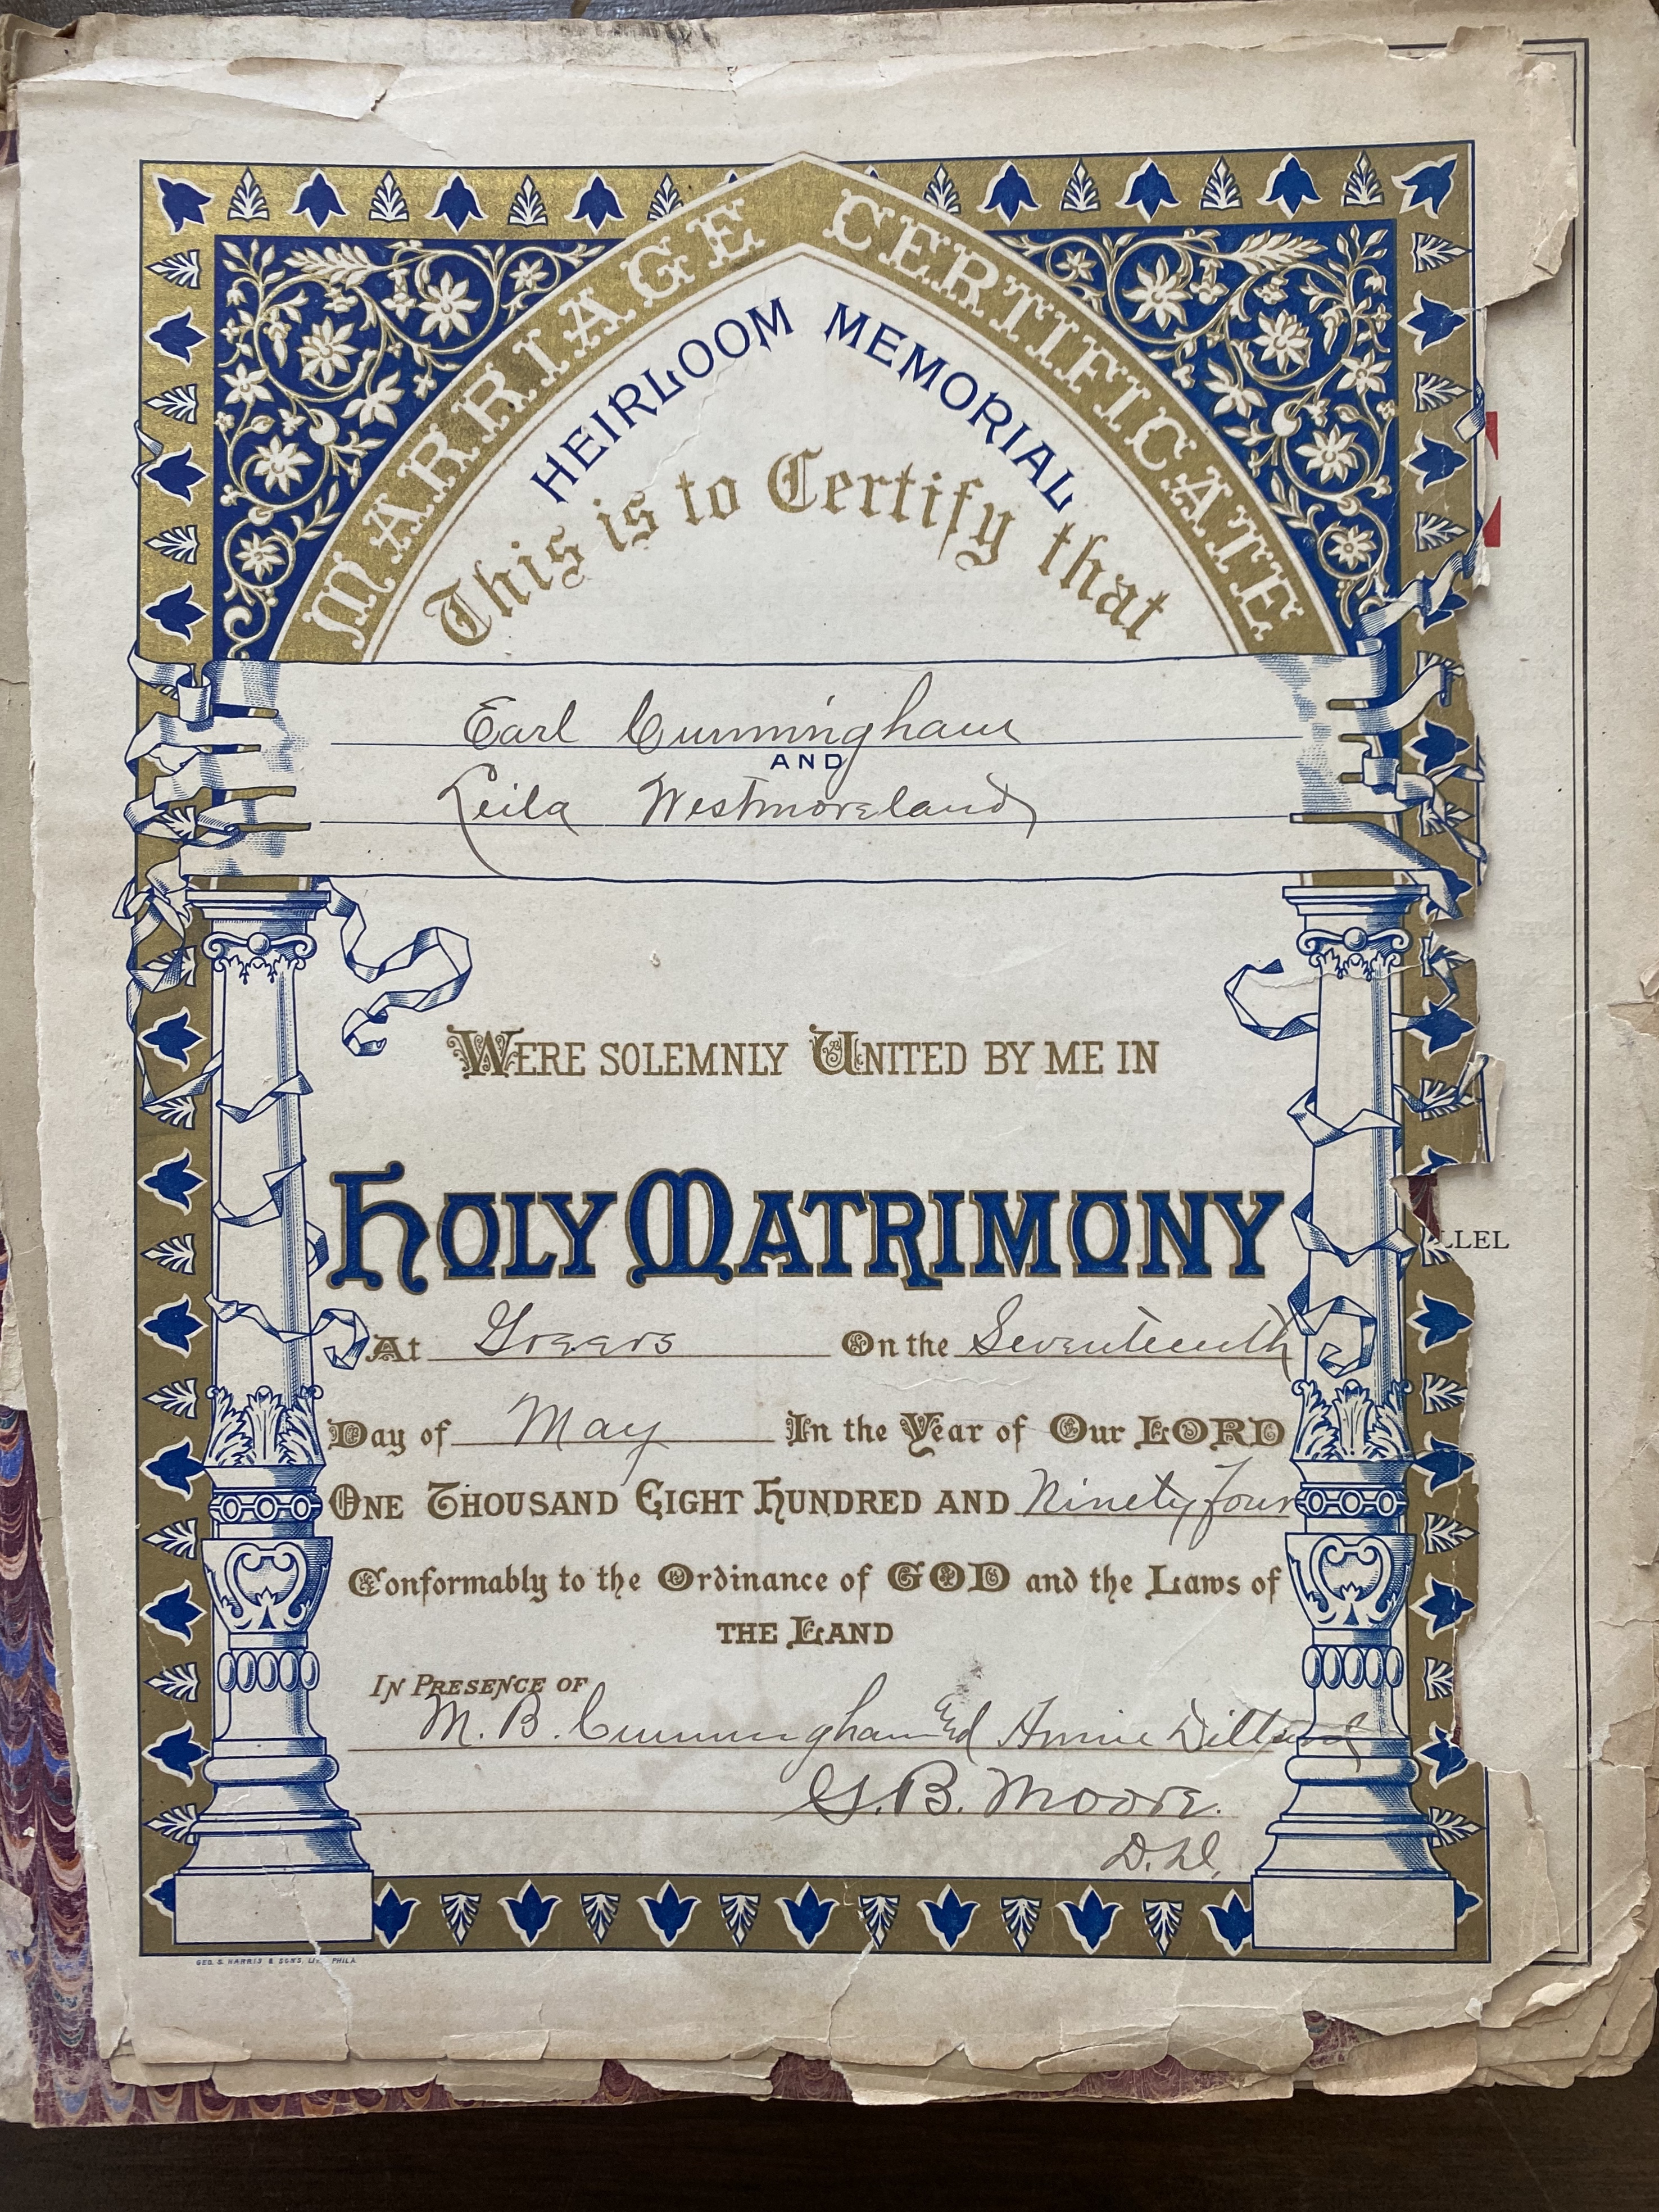 MARRIAGE CERTIFICATE
HEIRLOOM MEMORIAL
This is to Certify that
Earl Cunningham
AND
Leila Westmoreland
WERE SOLEMNLY UNITED BY ME IN
HOLY MATRIMONY
At Greers On the Seventeenth
Day of May In the Year of Our LORD
ONE THOUSAND EIGHT HUNDRED AND Ninety four
Conformably to the Ordinance of GOD and the Laws of
THE LAND
IN PRESENCE OF
M. B. Cunningham and Annie Dillard
G. B. Moore.
D.D.
GEO. S. HARRIS & SONS, LITH. PHILA.
LLEL